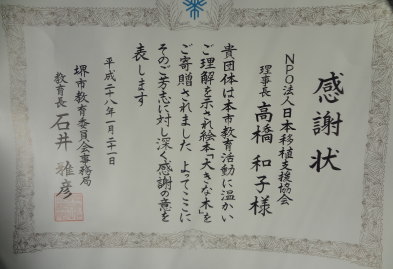 感謝状
NPO法人日本移植支援協会
理事長 高橋 和子様
貴団体は本市教育活動に温かい
ご理解を示され絵本「大きな木」を
ご寄贈されました よってここに
そのご芳志に対し深く感謝の意を
表します
平成二十八年一月二十一日
堺市教育委員会事務局
教育長 石井 雅彦